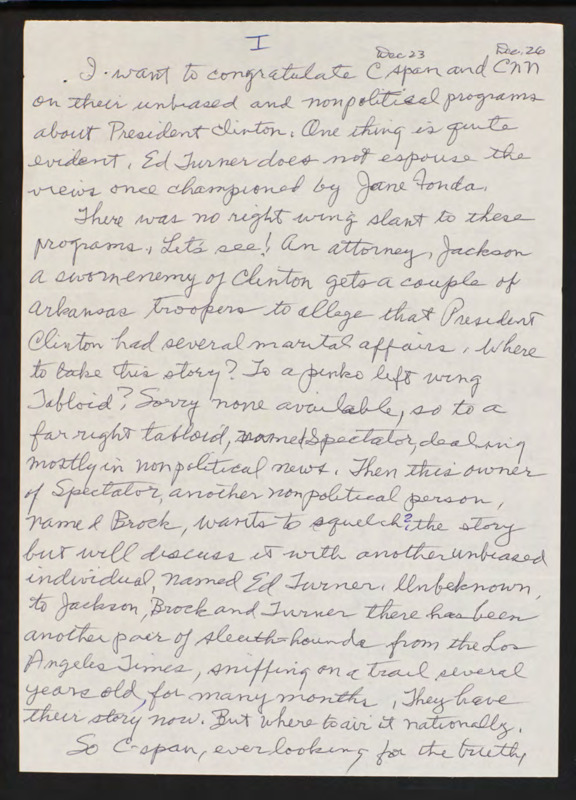 I
Dec 23 Dec. 26
I want to congratulate C span and CNN
on their unbiased and nonpolitical programs
about President Clinton. One thing is quite
evident, Ed Turner does not espouse the
views once championed by Jane Fonda.
There was no right wing slant to these
programs. Let's see! An attorney, Jackson
a sworn enemy of Clinton gets a couple of
Arkansas troopers to allege that President
Clinton had several marital affairs. Where
to take this story? To a pinko left wing
Tabloid? Sorry none available, so to a
far right tabloid, named Spectator, dealing
mostly in nonpolitical news. Then this owner
of Spectator, another nonpolitical person,
named Brock, wants to squelch? the story
but will discuss it with another unbiased
individual, named Ed Turner. Unbeknown,
to Jackson, Brock and Turner there has been
another pair of sleuth-hounds from the Los
Angeles Times, sniffing on a trail several
years old, for many months. They have
their story now. But where to air it nationally.
So C-span, ever looking for the truth,